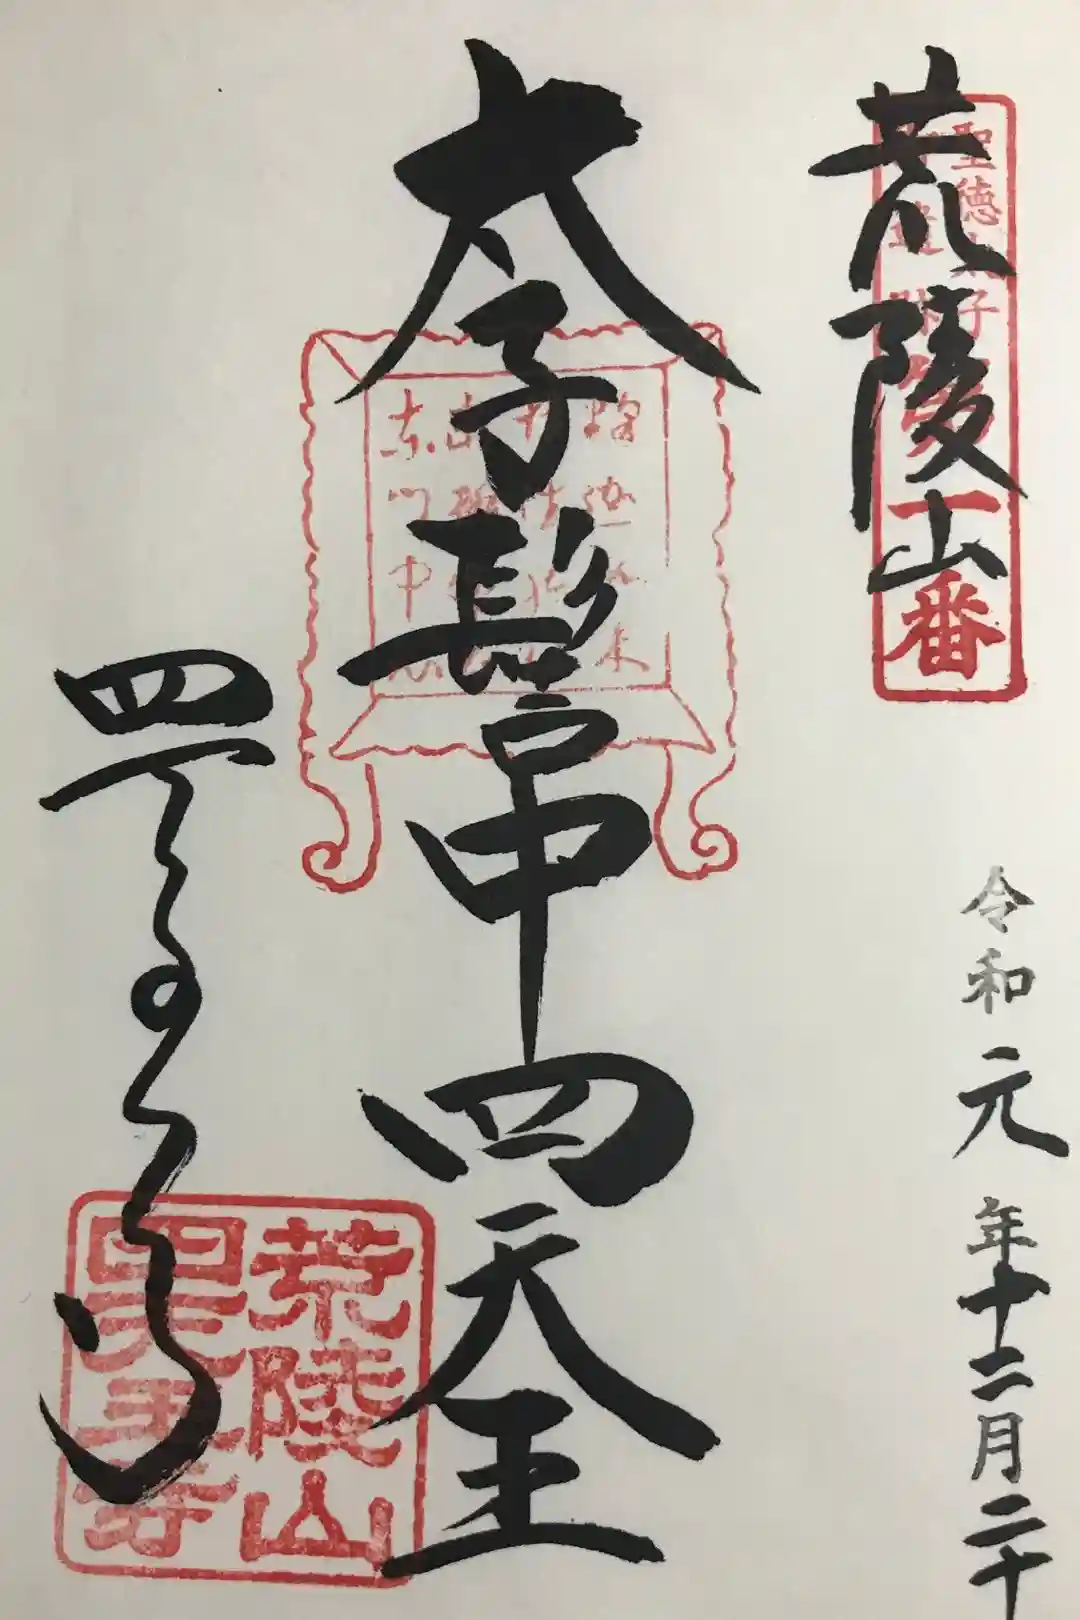 荒陵山
聖徳太子
御遺跡第一番
令和元年十二月二十
太子髻中四天王
四天王寺
荒陵山
四天王寺